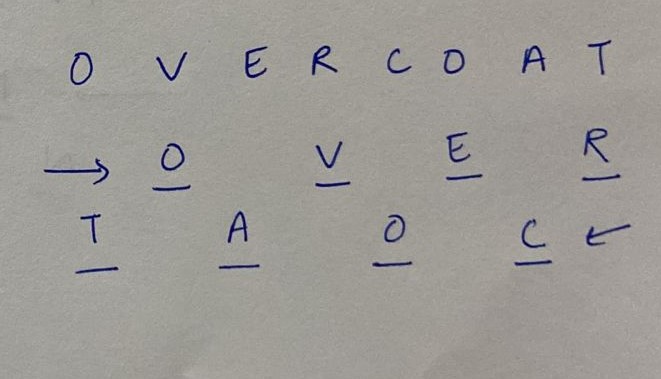 O V E R C O A T
→ O V E R
T A O C ←